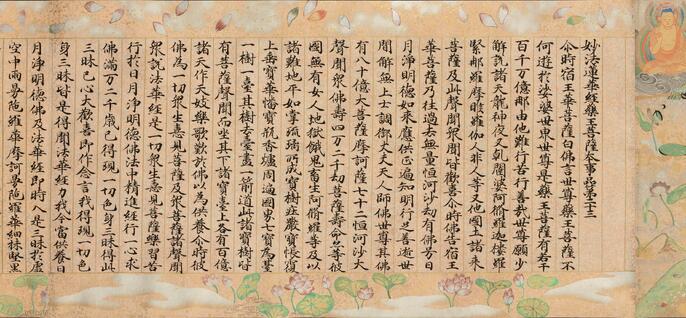 妙法蓮華經藥王菩薩本事品第二十三
尒時宿王華菩薩白佛言世尊藥王菩薩云
何遊於娑婆世界世尊是藥王菩薩有若干
百千万億那由他難行苦行善哉世尊願少
解說諸天龍神夜叉乾闥婆阿脩羅迦樓羅
緊那羅摩睺羅伽人非人等又他國土諸來
菩薩及此聲聞衆聞皆歡喜尒時佛告宿王
華菩薩乃往過去無量恒河沙劫有佛号日
月淨明德如來應供正遍知明行足善逝世
間解無上士調御丈夫天人師佛世尊其佛
有八十億大菩薩摩訶薩七十二恒河沙大
聲聞衆佛壽四万二千劫菩薩壽命亦等彼
國無有女人地獄餓鬼畜生阿脩羅等及以
諸難地平如掌琉璃所成寶樹莊嚴寶帳覆
上垂寶華幡寶瓶香爐周遍國界七寶為臺
一樹一臺其樹去臺盡一箭道此諸寶樹皆
有菩薩聲聞而坐其下諸寶臺上各有百億
諸天作天妓樂歌歎於佛以為供養尒時彼
佛為一切衆生憙見菩薩及衆菩薩諸聲聞
衆說法華經是一切衆生憙見菩薩樂習苦
行於日月淨明德佛法中精進經行一心求
佛滿万二千歲已得現一切色身三昧得此
三昧已心大歡喜即作念言我得現一切色
身三昧皆是得聞法華經力我今當供養日
月淨明德佛及法華經即時入是三昧於虛
空中雨曼陀羅華摩訶曼陀羅華細抹堅黑